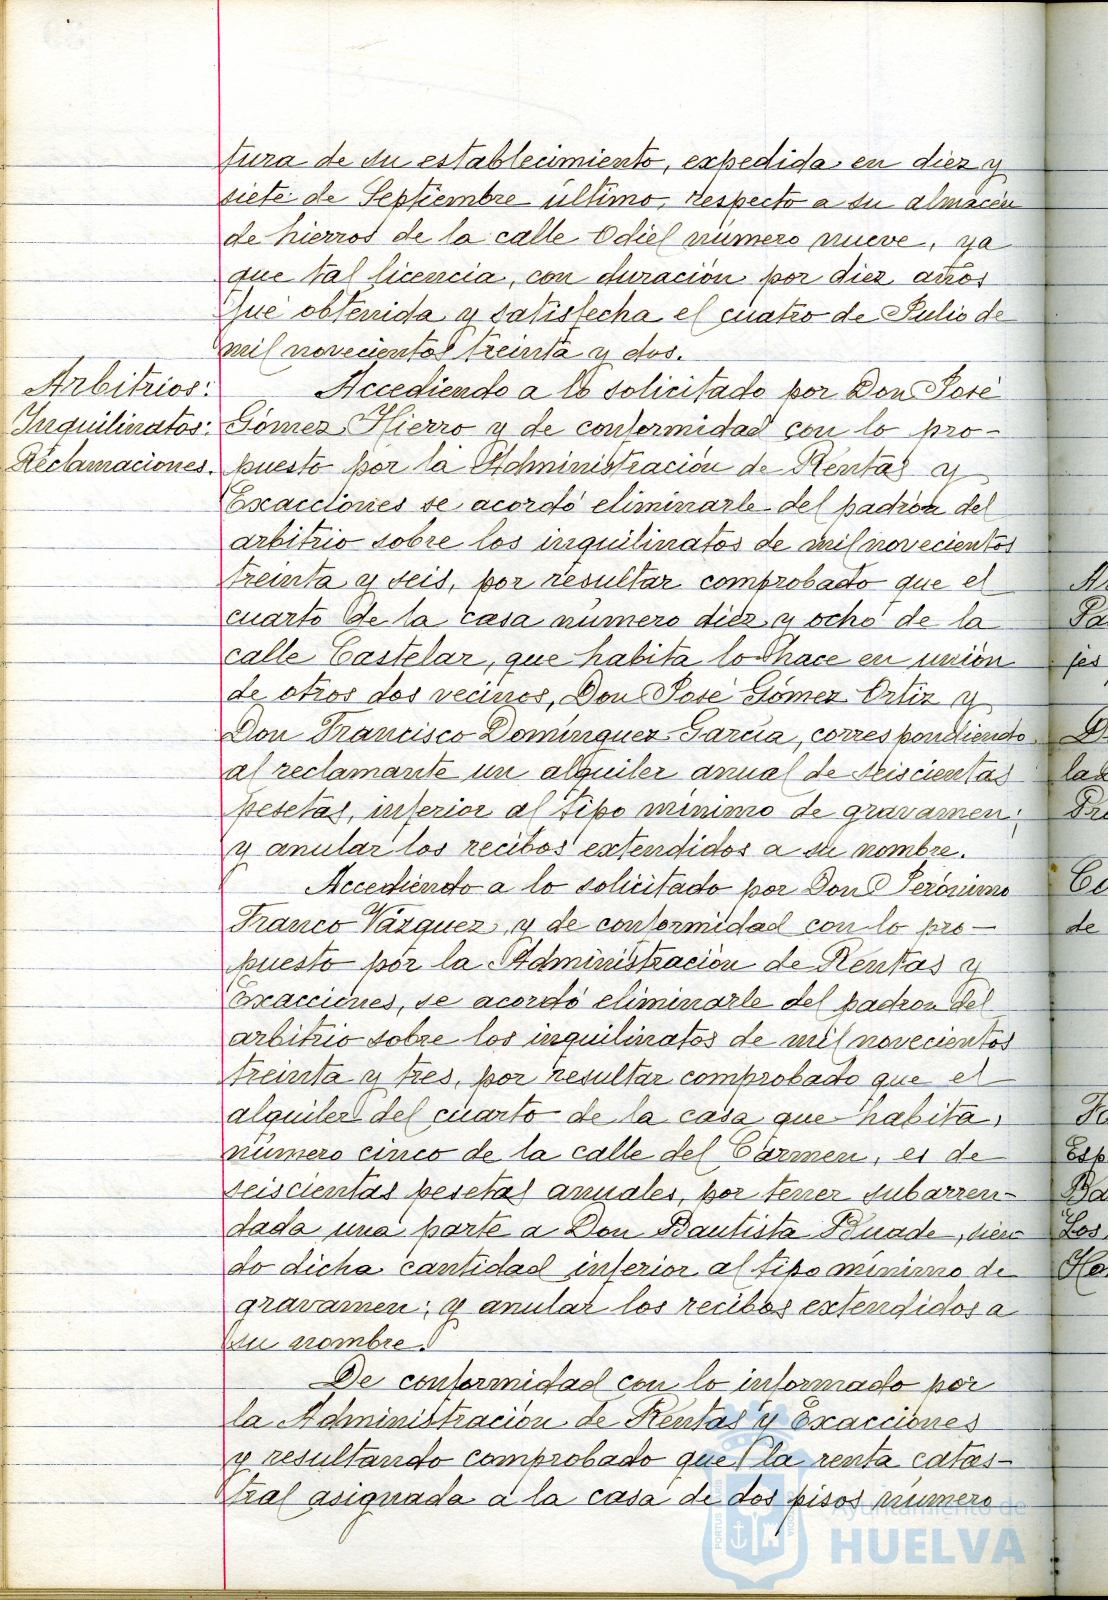 tura de su establecimiento, expedida en diez y
siete de Septiembre último, respecto a su almacén
de hierros de la calle Odiel número nueve, ya
que tal licencia, con duración por diez años
fué obtenida y satisfecha el cuatro de Julio de
mil novecientos treinta y dos.
Arbitrios:
Inquilinatos:
Reclamaciones.
Accediendo a lo solicitado por Don José
Gómez Hierro y de conformidad con lo pro-
puesto por la Administración de Rentas y
Exacciones se acordó eliminarle del padrón del
arbitrio sobre los inquilinatos de mil novecientos
treinta y seis, por resultar comprobado que el
cuarto de la casa número diez y ocho de la
calle Castelar, que habita lo hace en unión
de otros dos vecinos, Don José Gómez Ortiz y
Don Francisco Domínguez García, correspondiendo
al reclamante un alquiler anual de seiscientas
pesetas, inferior al tipo mínimo de gravamen;
y anular los recibos extendidos a su nombre.
Accediendo a lo solicitado por Don Jerónimo
Franco Vázquez, y de conformidad con lo pro-
puesto por la Administración de Rentas y
Exacciones, se acordó eliminarle del padron del
arbitrio sobre los inquilinatos de mil novecientos
treinta y tres, por resultar comprobado que el
alquiler del cuarto de la casa que habita,
número cinco de la calle del Carmen, es de
seiscientas pesetas anuales, por tener subarren-
dada una parte a Don Bautista Buade, sien-
do dicha cantidad inferior al tipo mínimo de
gravamen; y anular los recibos extendidos a
su nombre.
De conformidad con lo informado por
la Administración de Rentas y Exacciones
y resultando comprobado que la renta catas-
tral asignada a la casa de dos pisos número
Ayuntamiento de
HUELVA